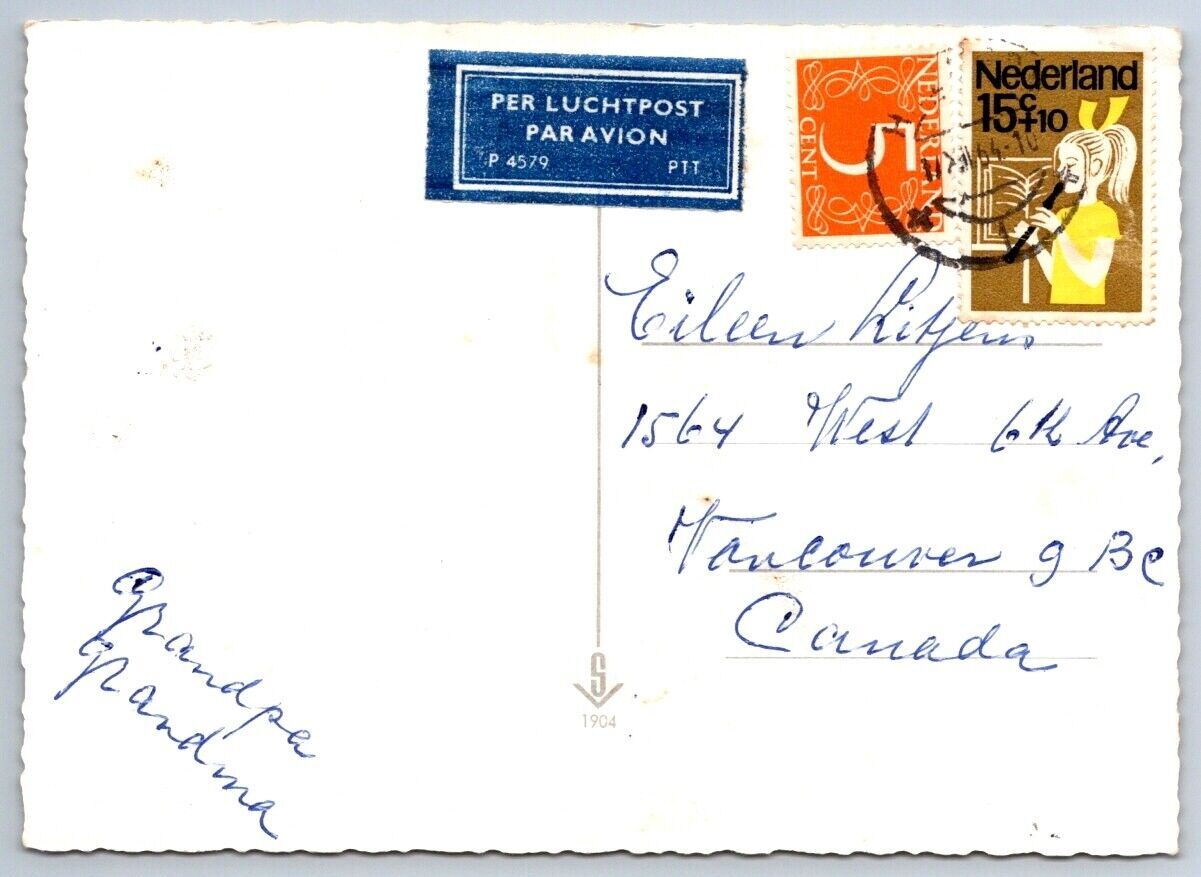 PER LUCHTPOST
PAR AVION
P 4579 PTT
NEDERLAND
5
CENT
Nederland
15c+10
Eileen Litjens
1564 West 6th Ave,
Vancouver 9 BC
Canada
Grandpa
Grandma
S
1904